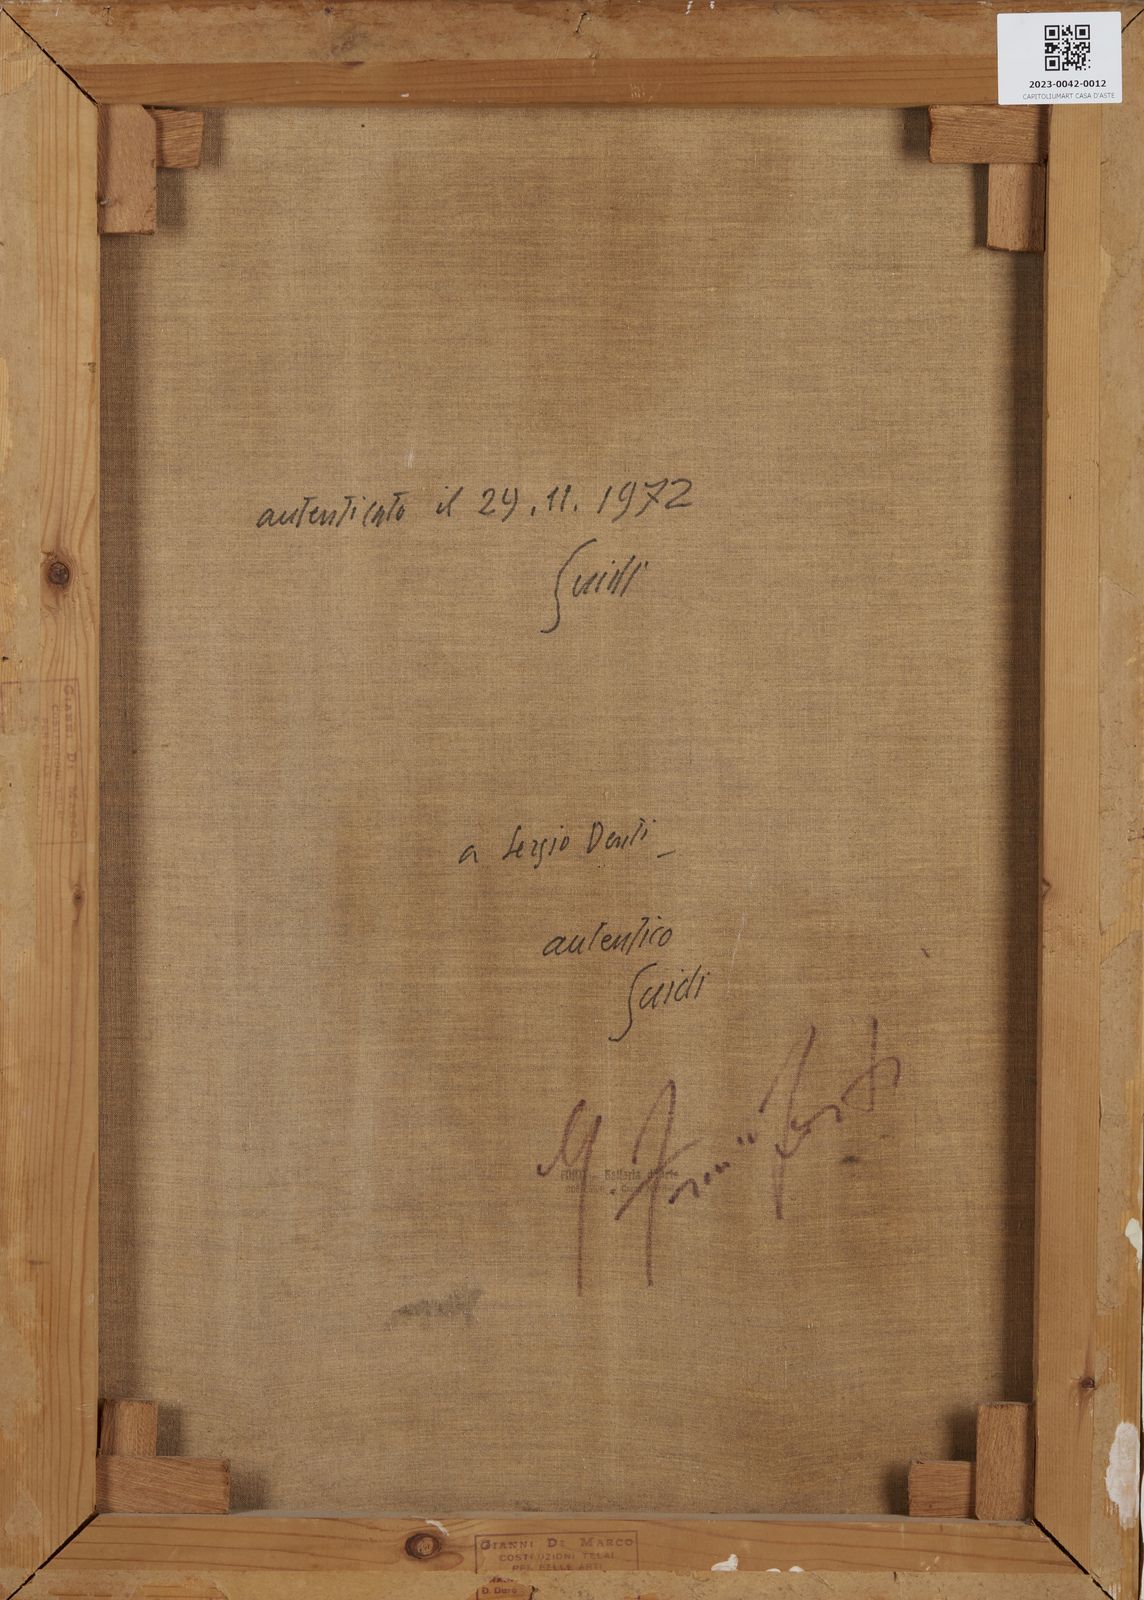 2023-0042-0012
CAPITOLIUMART CASA D'ASTE
autenticato il 29.11.1972
Guidi
a Sergio Denti
autentico
Guidi
Galleria d'Arte
GIANNI DI MARCO
GIANNI DI MARCO
COSTRUZIONI TELAI
PER BELLE ARTI